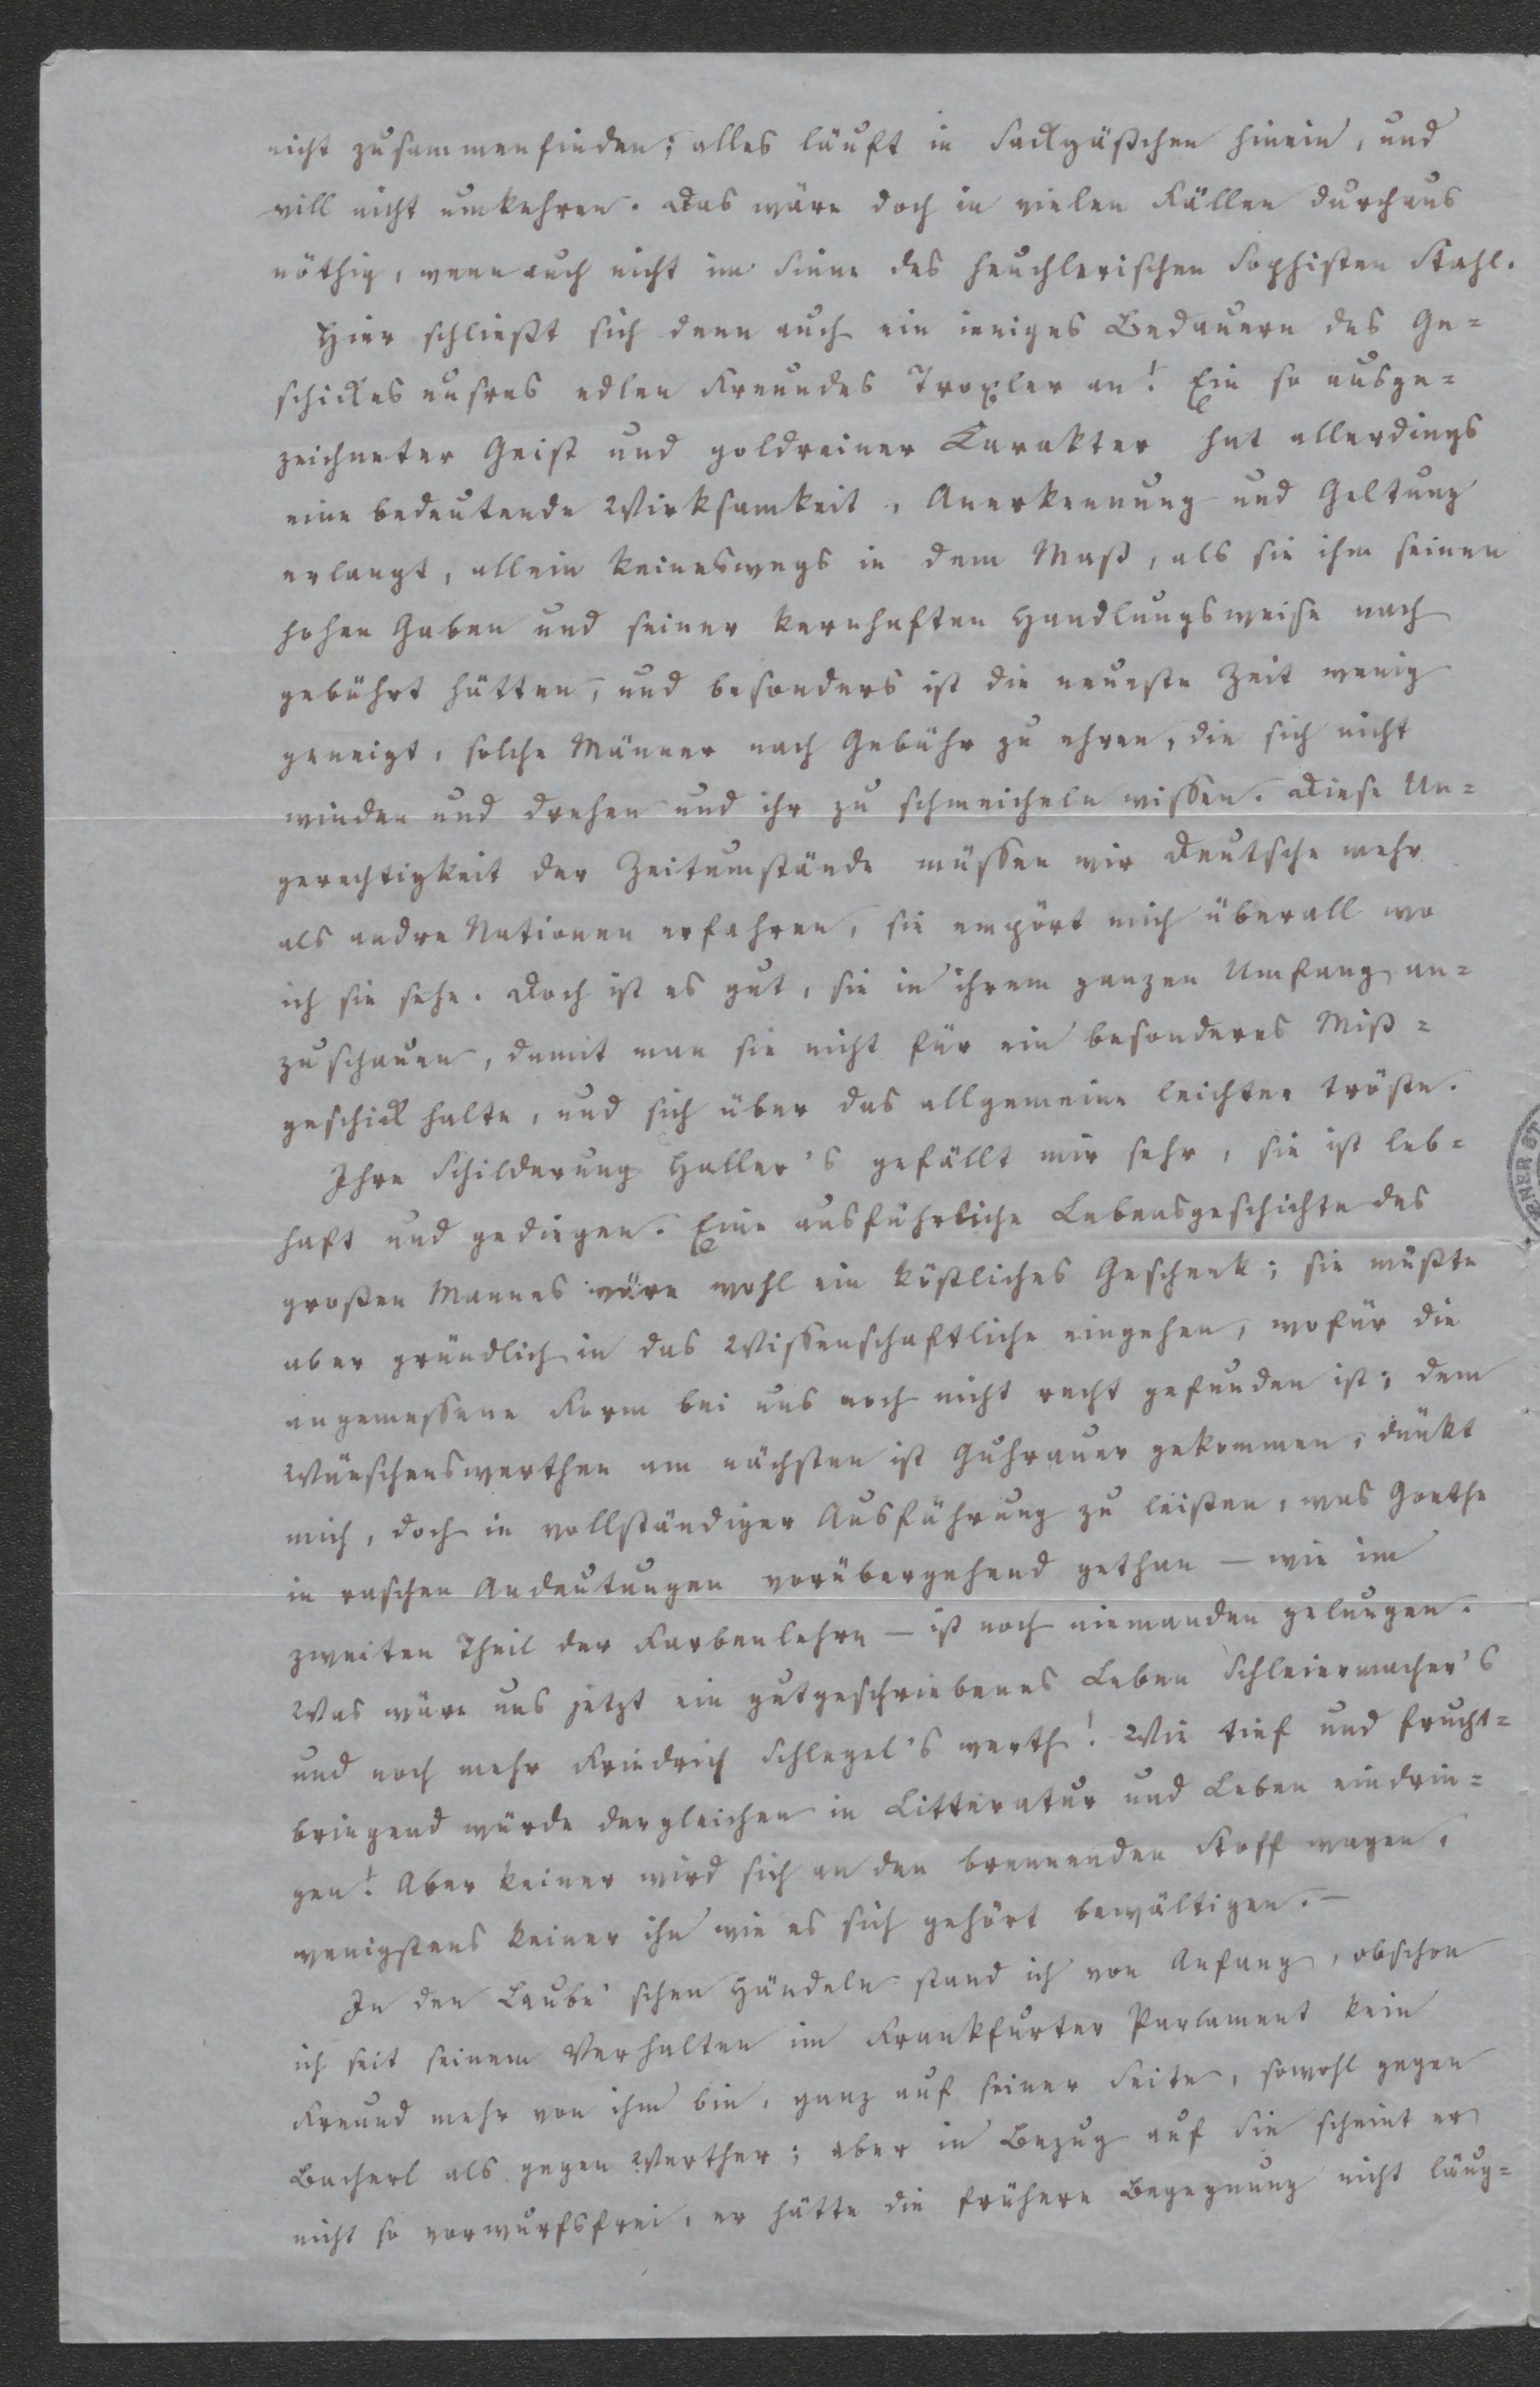 nicht zusammenfinden; alles läuft in Sackgäßchen hinein, und
will nicht umkehren. Das wäre doch in vielen Fällen durchaus
nöthig, wenn auch nicht im Sinne des heuchlerischen Sophisten Stahl.
Hier schließt sich denn auch ein inniges Bedauern des Ge=
schickes unsres edlen Freundes Troxler an! Ein so ausge=
zeichneter Geist und goldreiner Karakter hat allerdings
eine bedeutende Wirksamkeit, Anerkennung und Geltung
erlangt, allein keineswegs in dem Maß, als sie ihm seinen
hohen Gaben und seiner kernhaften Handlungsweise nach
gebührt hätten, und besonders ist die neueste Zeit wenig
geneigt, solche Männer nach Gebühr zu ehren, die sich nicht
winden und drehen und ihr zu schmeicheln wissen. Diese Un=
gerechtigkeit der Zeitumstände müssen wir Deutsche mehr
als andre Nationen erfahren, sie empört mich überall wo
ich sie sehe. Doch ist es gut, sie in ihrem ganzen Umfang an=
zuschauen, damit man sie nicht für ein besonderes Miß=
geschick halte, und sich über das allgemeine leichter tröste.
Ihre Schilderung Haller's gefällt mir sehr, sie ist leb=
haft und gediegen. Eine ausführliche Lebensgeschichte des
großen Mannes wäre wohl ein köstliches Geschenk; sie müßte
aber gründlich in das Wissenschaftliche eingehen, wofür die
angemessene Form bei uns noch nicht recht gefunden ist; dem
Wünschenswerthen am nächsten ist Guhrauer gekommen, dünkt
mich, doch in vollständiger Ausführung zu leisten, was Goethe
in raschen Andeutungen vorübergehend gethan – wie im
zweiten Theil der Farbenlehre – ist noch niemanden gelungen.
Was wäre uns jetzt ein gutgeschriebenes Leben Schleiermacher's
und noch mehr Friedrich Schlegel's werth! Wie tief und frucht=
bringend würde dergleichen in Litteratur und Leben eindrin=
gen! Aber keiner wird sich an den brennenden Stoff wagen,
wenigstens keiner ihn wie es sich gehört bewältigen. –
In den Laube'schen Händeln stand ich von Anfang, obschon
ich seit seinem Verhalten im Frankfurter Parlament kein
Freund mehr von ihm bin, ganz auf seiner Seite, sowohl gegen
Bacherl als gegen Werther; aber in Bezug auf Sie scheint er
nicht so vorwurfsfrei, er hätte die frühere Begegnung nicht läug=